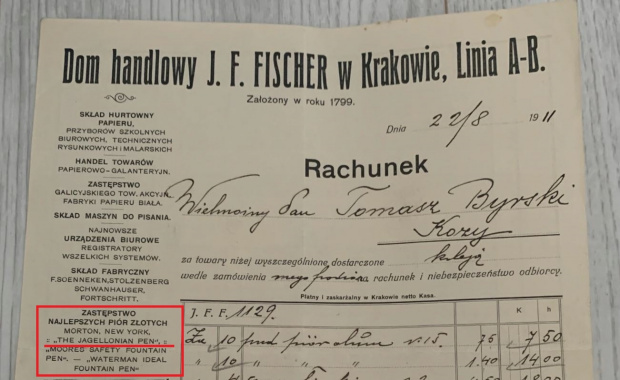 Dom handlowy J. F. FISCHER w Krakowie, Linia A-B.
Założony w roku 1799.
Dnia 22/8 1911
SKŁAD HURTOWNY
PAPIERU,
PRZYBORÓW SZKOLNYCH
BIUROWYCH, TECHNICZNYCH
RYSUNKOWYCH i MALARSKICH
HANDEL TOWARÓW
PAPIEROWO-GALANTERYJN.
ZASTĘPSTWO
GALICYJSKIEGO TOW. AKCYJN.
FABRYKI PAPIERU BIAŁA.
SKŁAD MASZYN DO PISANIA.
NAJNOWSZE
URZĄDZENIA BIUROWE
REGISTRATORY
WSZELKICH SYSTEMÓW.
SKŁAD FABRYCZNY
F. SOENNEKEN, STOLZENBERG
SCHWANHAUSER,
FORTSCHRITT.
ZASTĘPSTWO
NAJLEPSZYCH PIÓR ZŁOTYCH
MORTON, NEW YORK,
= „THE JAGELLONIAN PEN", =
„MOORES SAFETY FOUNTAIN
PEN". — „WATERMAN IDEAL
FOUNTAIN PEN"
Rachunek
Wielmożny Pan Tomasz Byrski
Kozy
za towary niżej wyszczególnione dostarczone koleją
wedle zamówienia na rachunek i niebezpieczeństwo odbiorcy.
Płatny i zaskarżalny w Krakowie netto Kasa.
J. F. F. 1129. K h
Za 10 piór n. 15. 75 7 50
" 10 " " 1.40 14 00